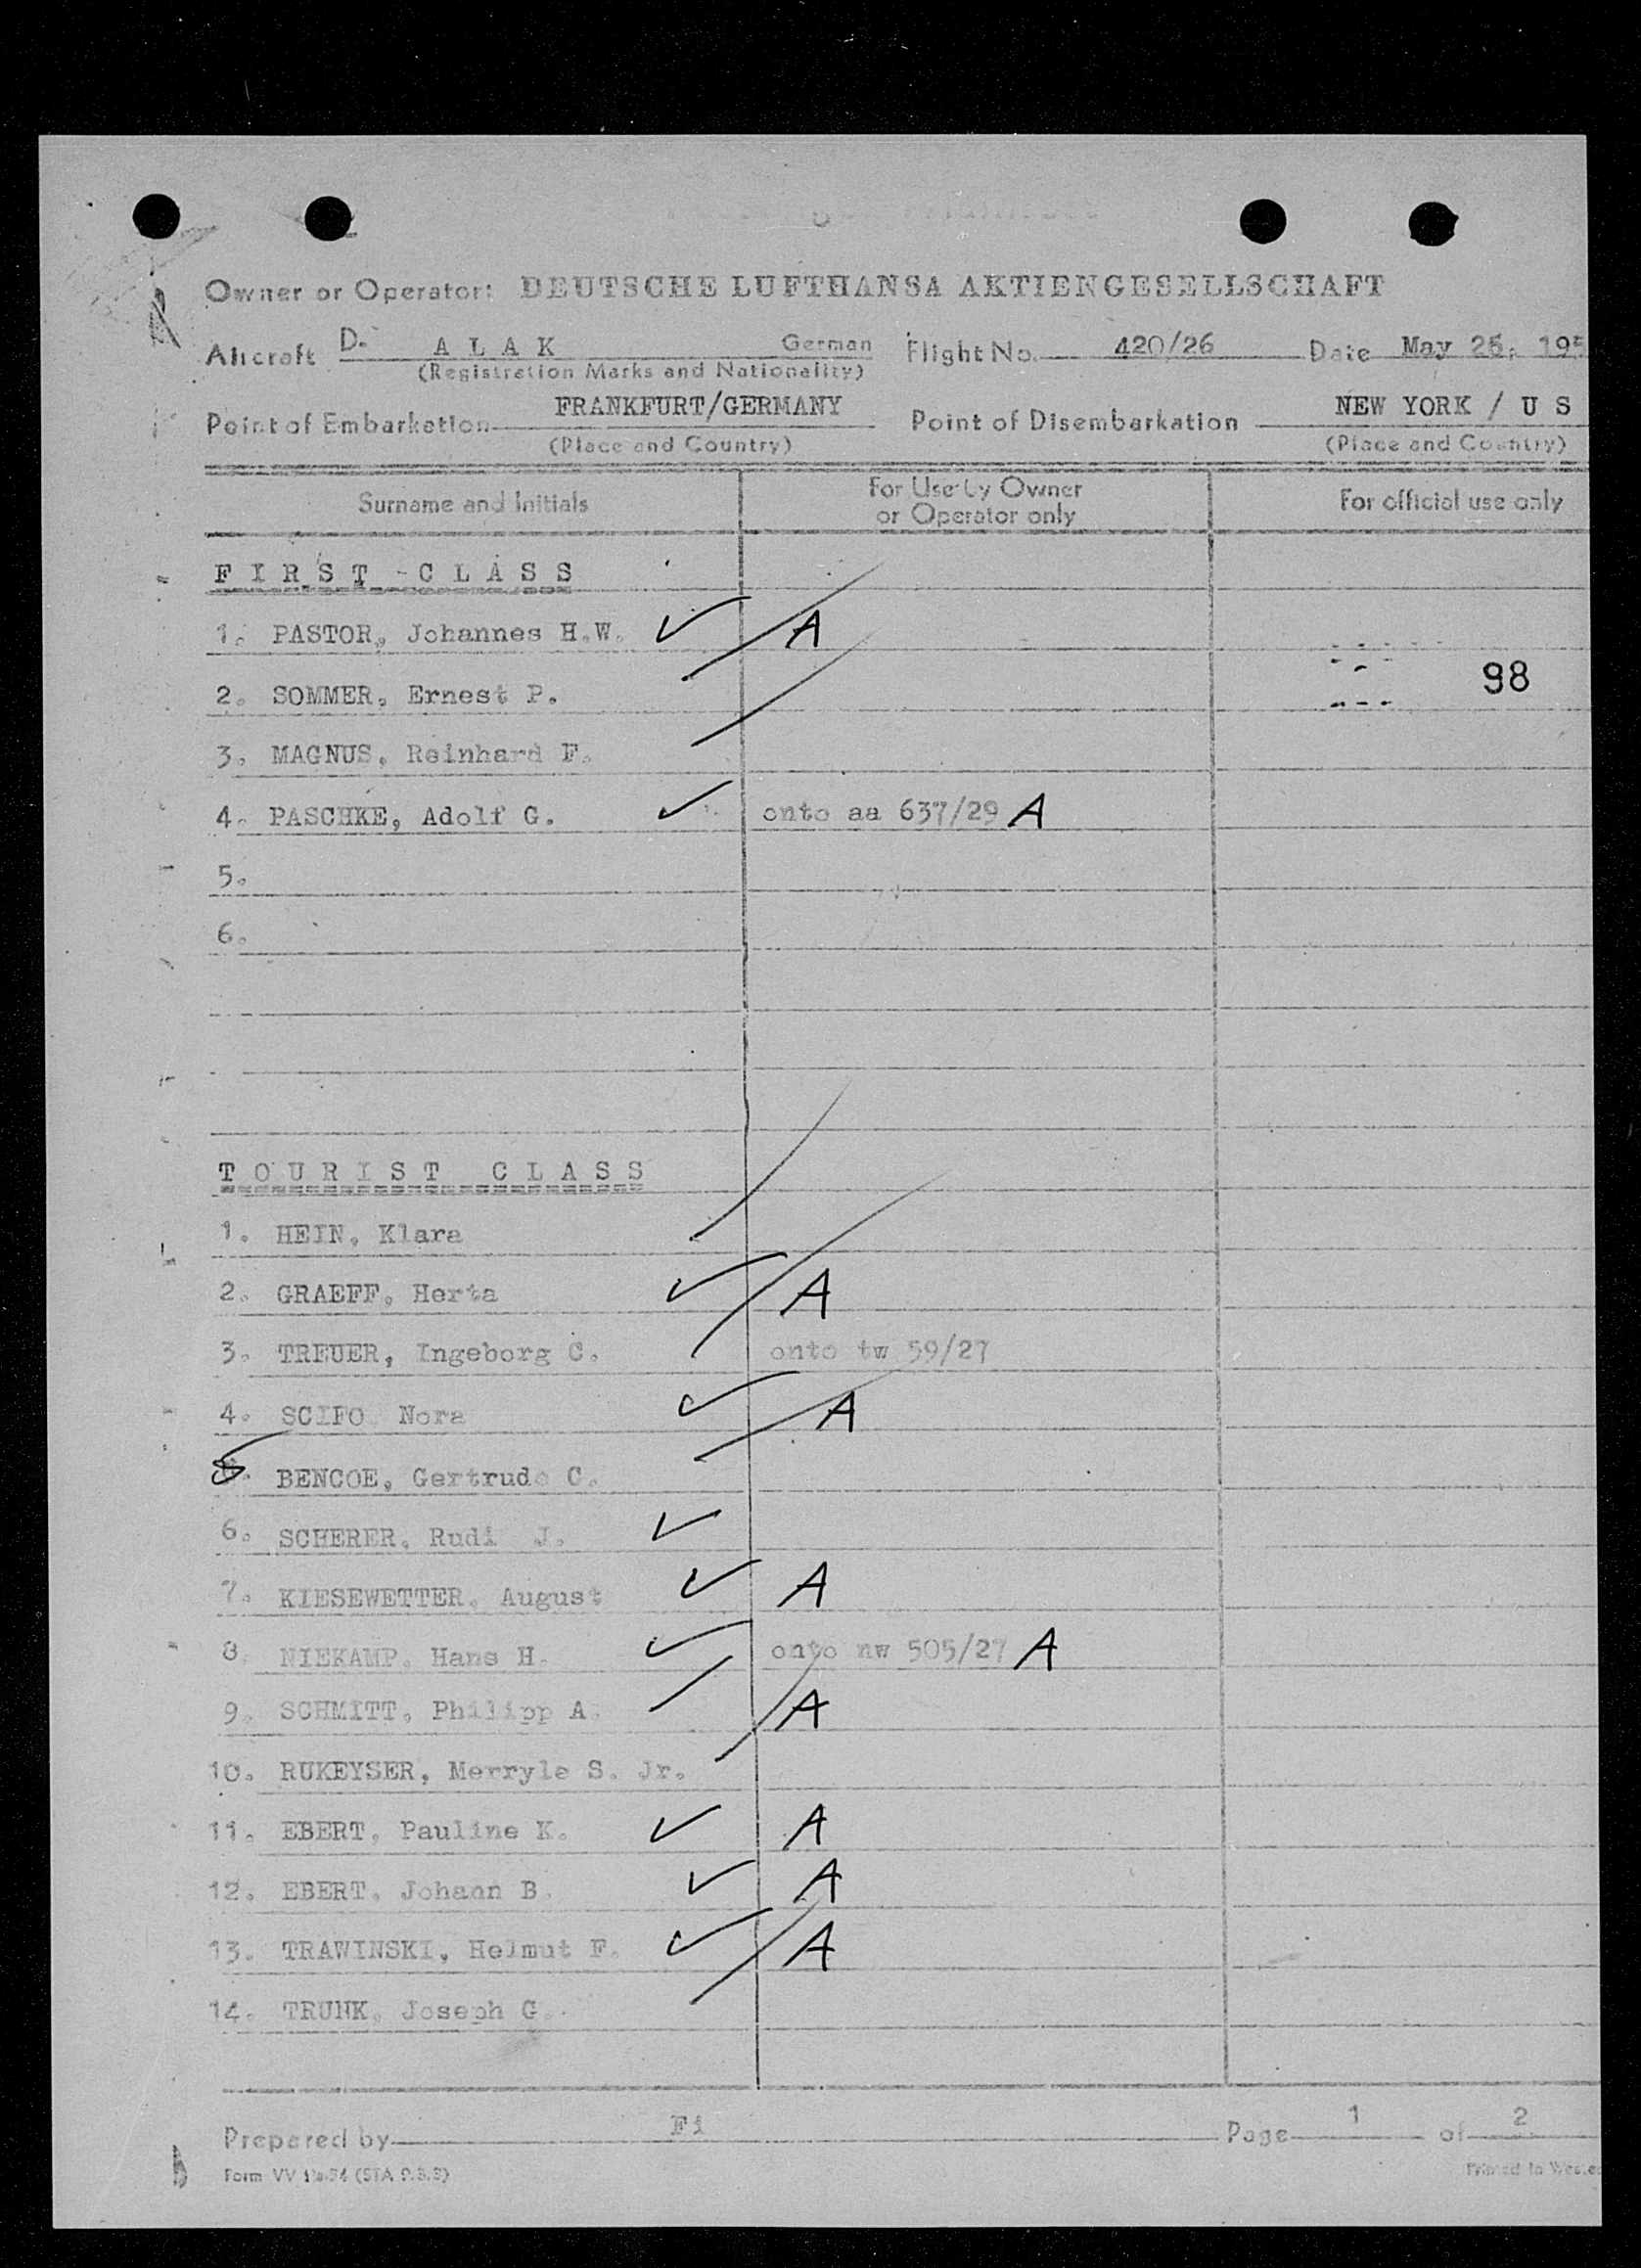 Owner or Operator: DEUTSCHE LUFTHANSA AKTIENGESELLSCHAFT
Aircraft D- A L A K German Flight No. 420/26 Date May 26, 195
(Registration Marks and Nationality)
Point of Embarkation FRANKFURT/GERMANY Point of Disembarkation NEW YORK / U S
(Place and Country) (Place and Country)
Surname and Initials For Use by Owner or Operator only For official use only
F I R S T - C L A S S
1. PASTOR, Johannes H.W. ✓ A
2. SOMMER, Ernest P. 98
3. MAGNUS, Reinhard F.
4. PASCHKE, Adolf G. ✓ onto aa 637/29 A
5.
6.
T O U R I S T C L A S S
1. HEIN, Klara
2. GRAEFF, Herta ✓ A
3. TREUER, Ingeborg C. onto tw 59/27
4. SCIFO Nora ✓ A
5. BENCOE, Gertrude C.
6. SCHERER, Rudi J. ✓
7. KIESEWETTER, August ✓ A
8. NIEKAMP, Hans H. ✓ onto nw 505/27 A
9. SCHMITT, Philipp A. A
10. RUKEYSER, Merryle S. Jr.
11. EBERT, Pauline K. ✓ A
12. EBERT, Johann B. ✓ A
13. TRAWINSKI, Helmut F. ✓ A
14. TRUNK, Joseph G.
Prepared by Fi Page 1 of 2
Form VV (STA 9.3.3)
Printed in